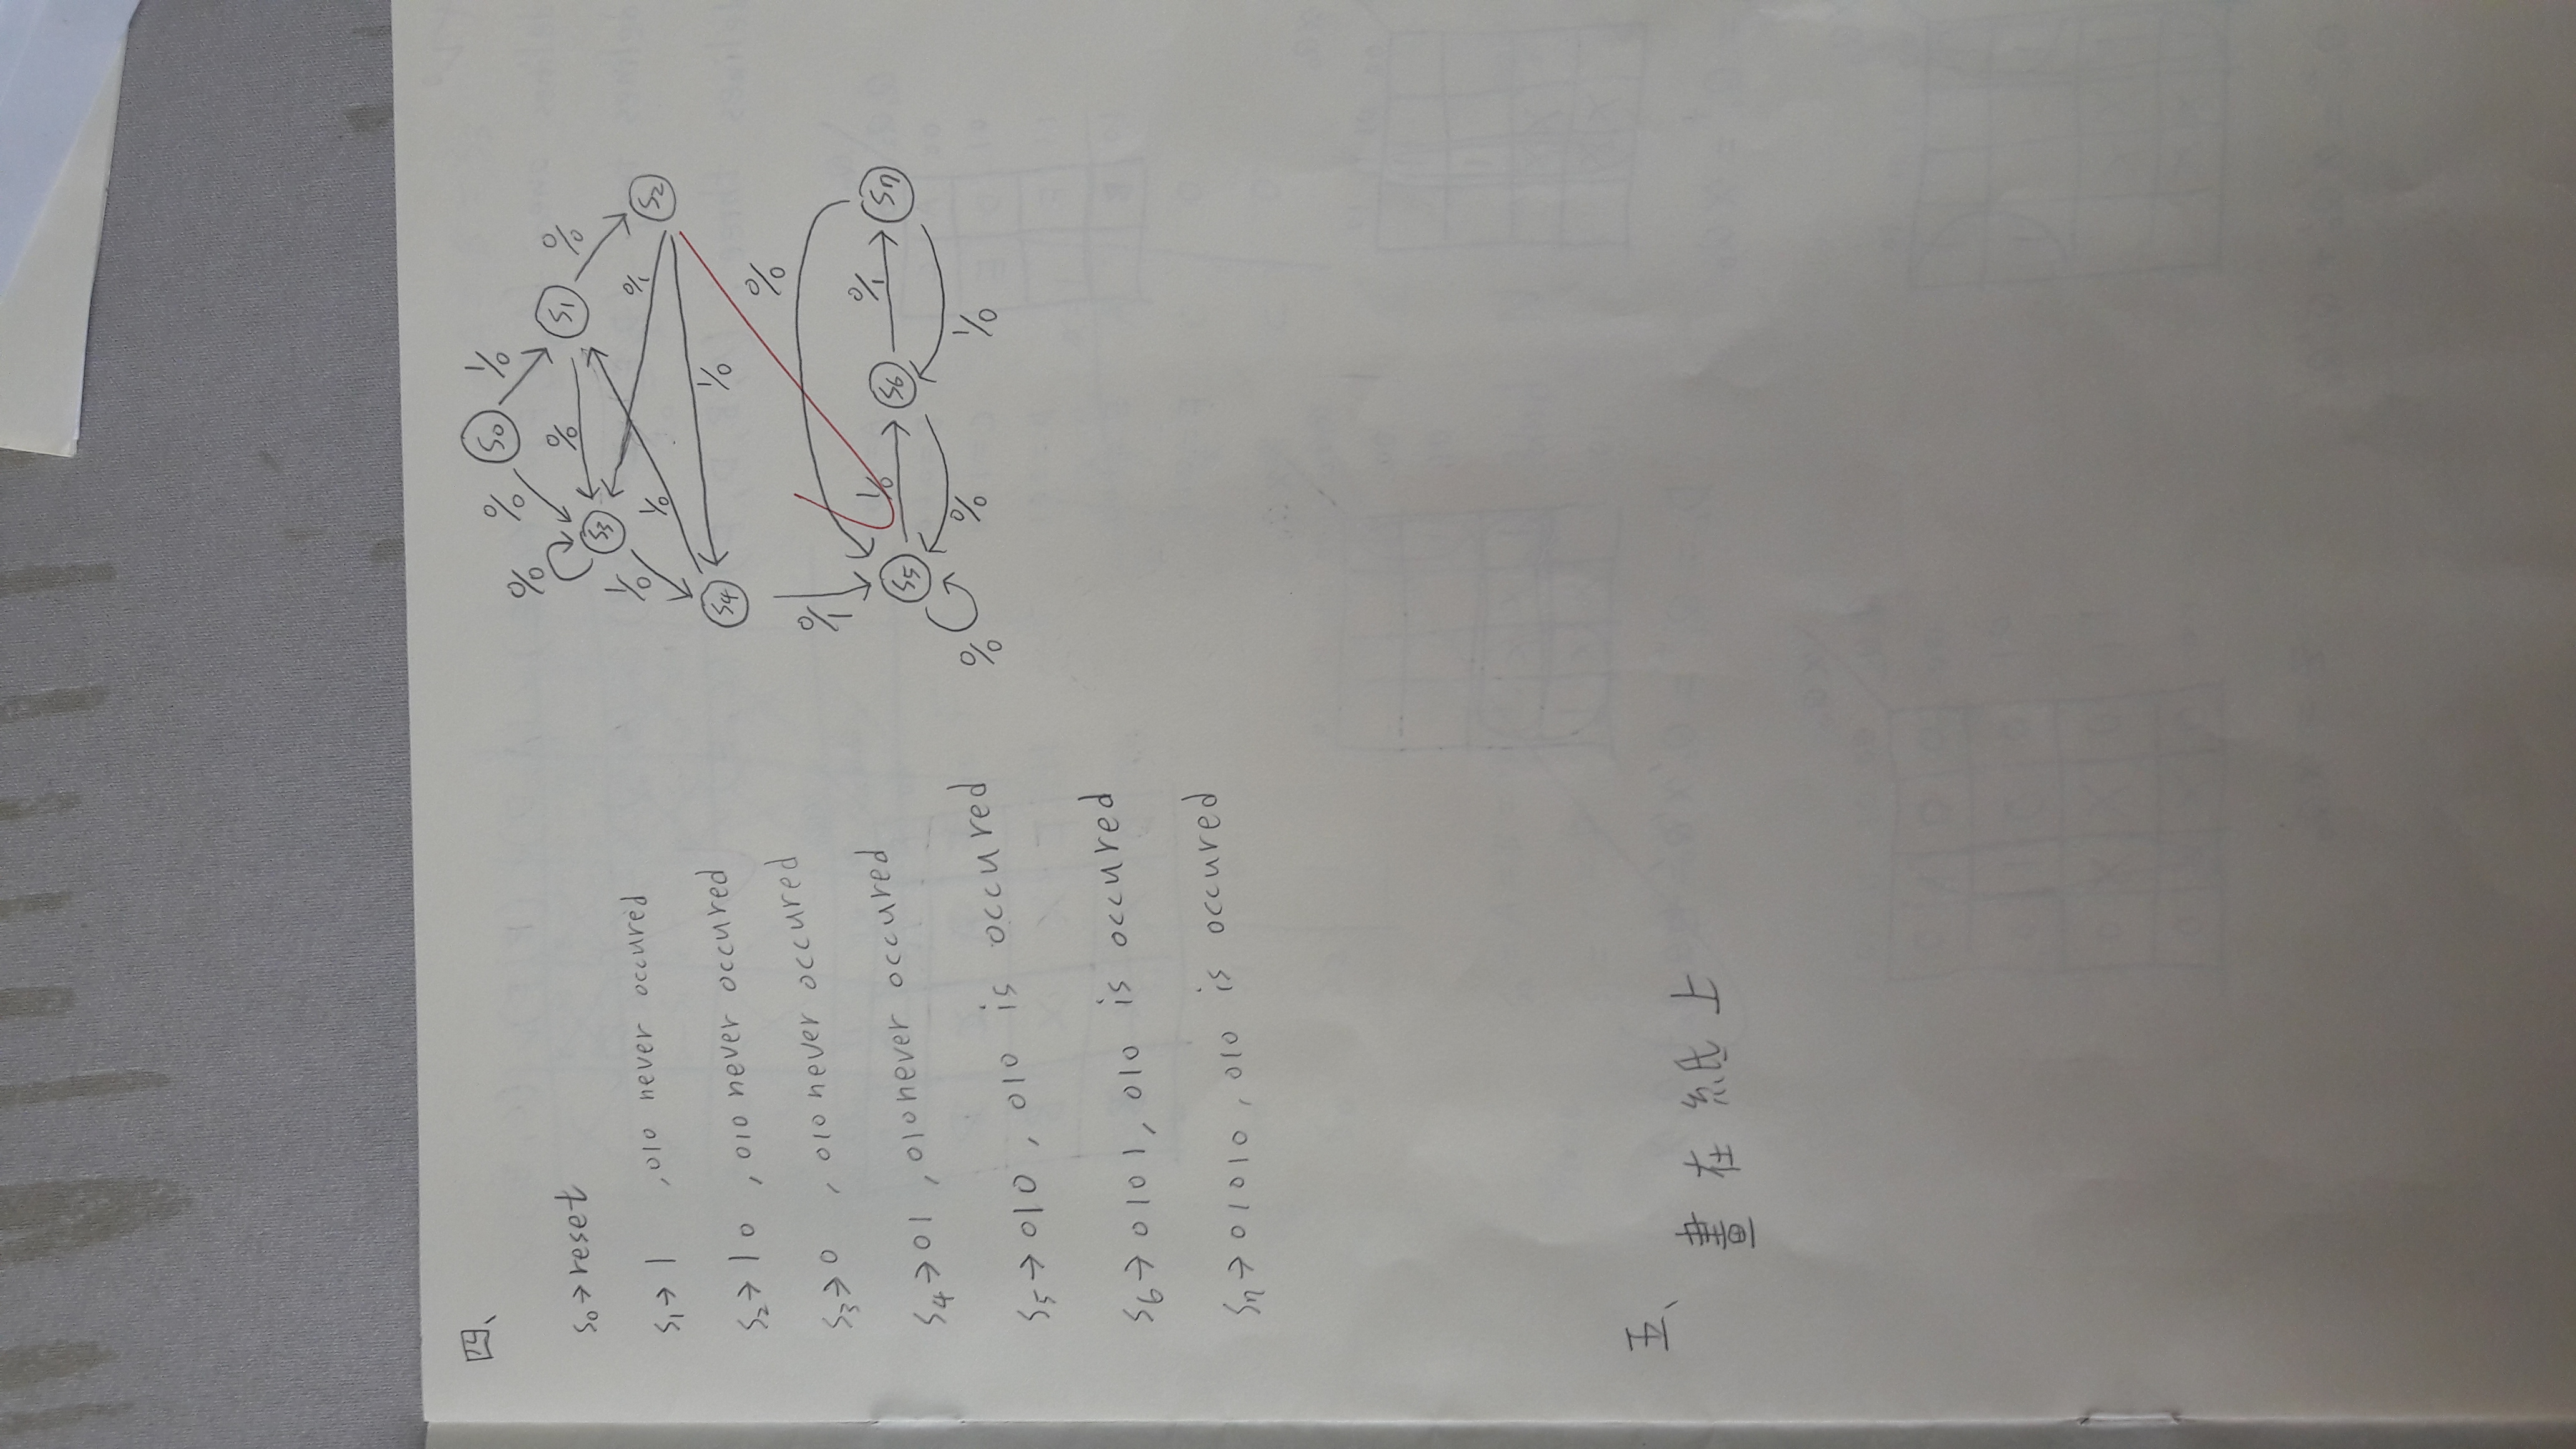 四、
S0→reset
S1→1 ,010 never occured
S2→10 ,010 never occured
S3→0 ,010 never occured
S4→01 ,010 never occured
S5→010 , 010 is occured
S6→0101, 010 is occured
S7→01010, 010 is occured
S0
1/0
0/0
0/0
S1
0/0
0/0
S3
1/0
1/0
0/1
S2
S4
1/0
0/0
0/1
S5
1/0
S6
0/1
S7
0/0
0/0
1/0
五、
畫在紙上